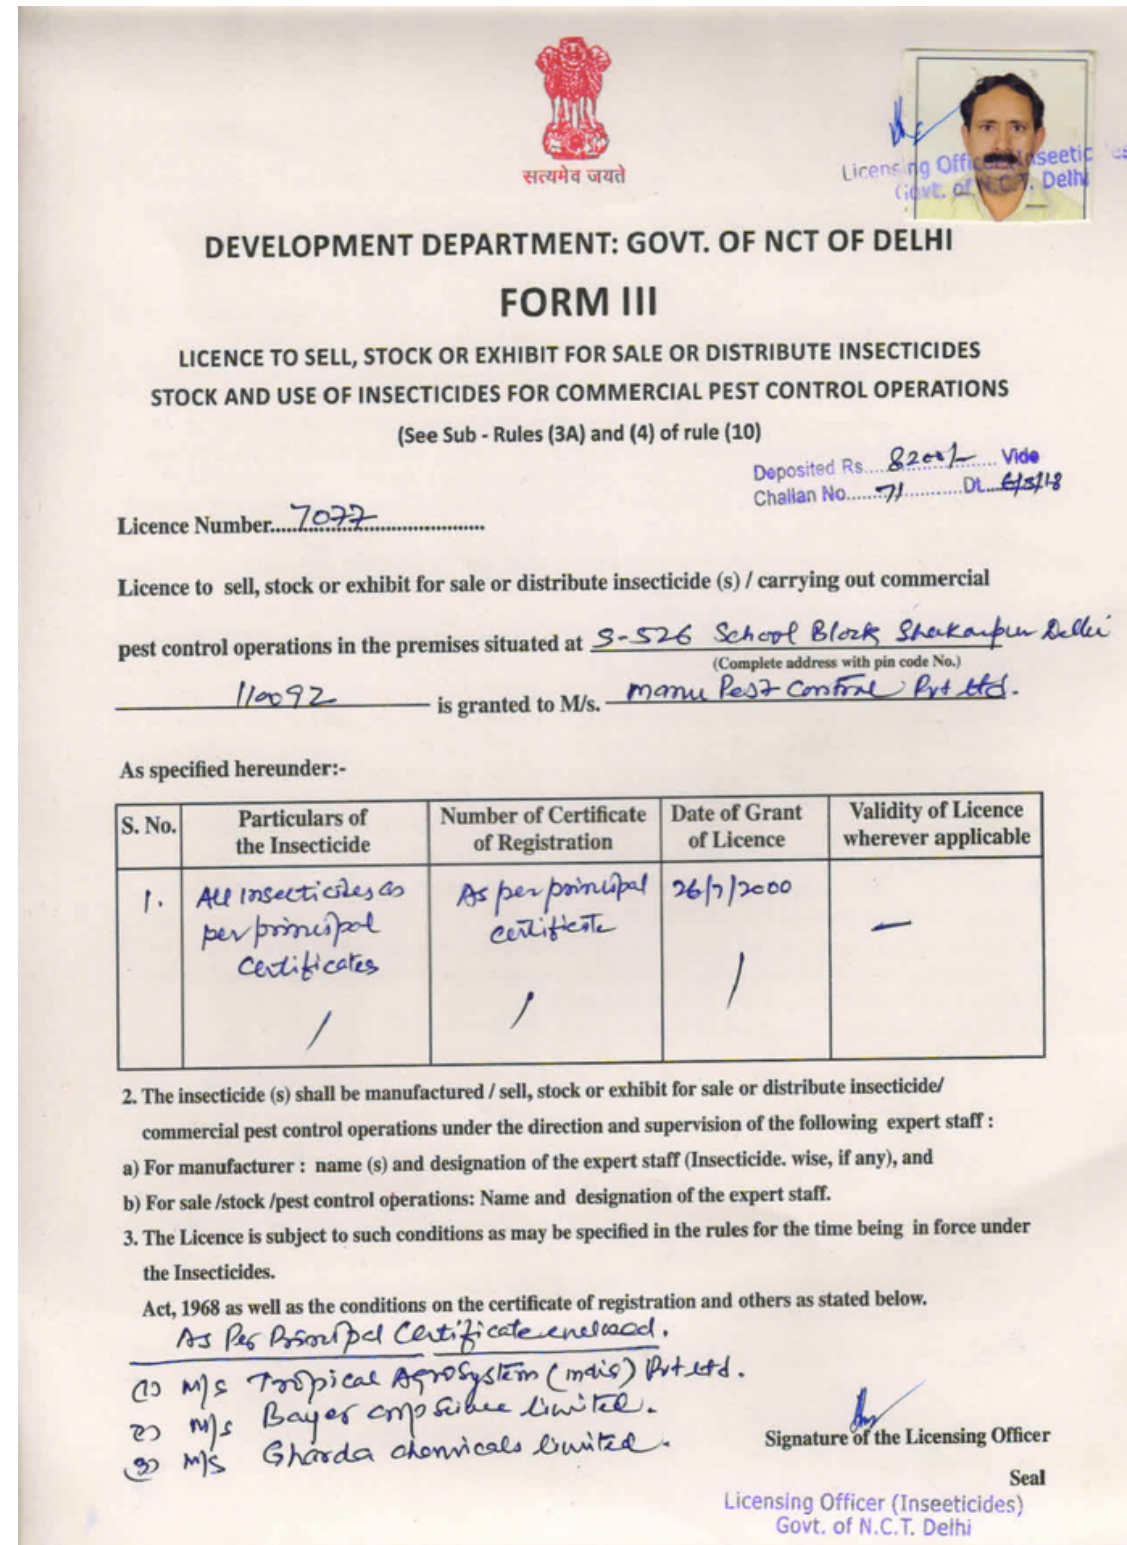 सत्यमेव जयते
Licensing Officer (Inseetic es
Govt. of N.C.T. Delhi
DEVELOPMENT DEPARTMENT: GOVT. OF NCT OF DELHI
FORM III
LICENCE TO SELL, STOCK OR EXHIBIT FOR SALE OR DISTRIBUTE INSECTICIDES
STOCK AND USE OF INSECTICIDES FOR COMMERCIAL PEST CONTROL OPERATIONS
(See Sub - Rules (3A) and (4) of rule (10)
Deposited Rs....8200/-........ Vide
Challan No.......71...........Dt...6/3/18
Licence Number....7077....................
Licence to sell, stock or exhibit for sale or distribute insecticide (s) / carrying out commercial
pest control operations in the premises situated at S-526 School Block Shakarpur Delhi
(Complete address with pin code No.)
110092 is granted to M/s. Manu Pest Control Pvt Ltd.
As specified hereunder:-
S. No. Particulars of the Insecticide Number of Certificate of Registration Date of Grant of Licence Validity of Licence wherever applicable
1. All Insecticides as As per principal 26/7/2000 —
per principal certificate
Certificates
2. The insecticide (s) shall be manufactured / sell, stock or exhibit for sale or distribute insecticide/
commercial pest control operations under the direction and supervision of the following expert staff :
a) For manufacturer : name (s) and designation of the expert staff (Insecticide. wise, if any), and
b) For sale /stock /pest control operations: Name and designation of the expert staff.
3. The Licence is subject to such conditions as may be specified in the rules for the time being in force under
the Insecticides.
Act, 1968 as well as the conditions on the certificate of registration and others as stated below.
As Per Principal Certificate enclosed.
(1) M/S Tropical AgroSystem (India) Pvt Ltd.
2) M/S Bayer Crop Science Limited.
3) M/S Gharda Chemicals Limited.
Signature of the Licensing Officer
Seal
Licensing Officer (Inseeticides)
Govt. of N.C.T. Delhi